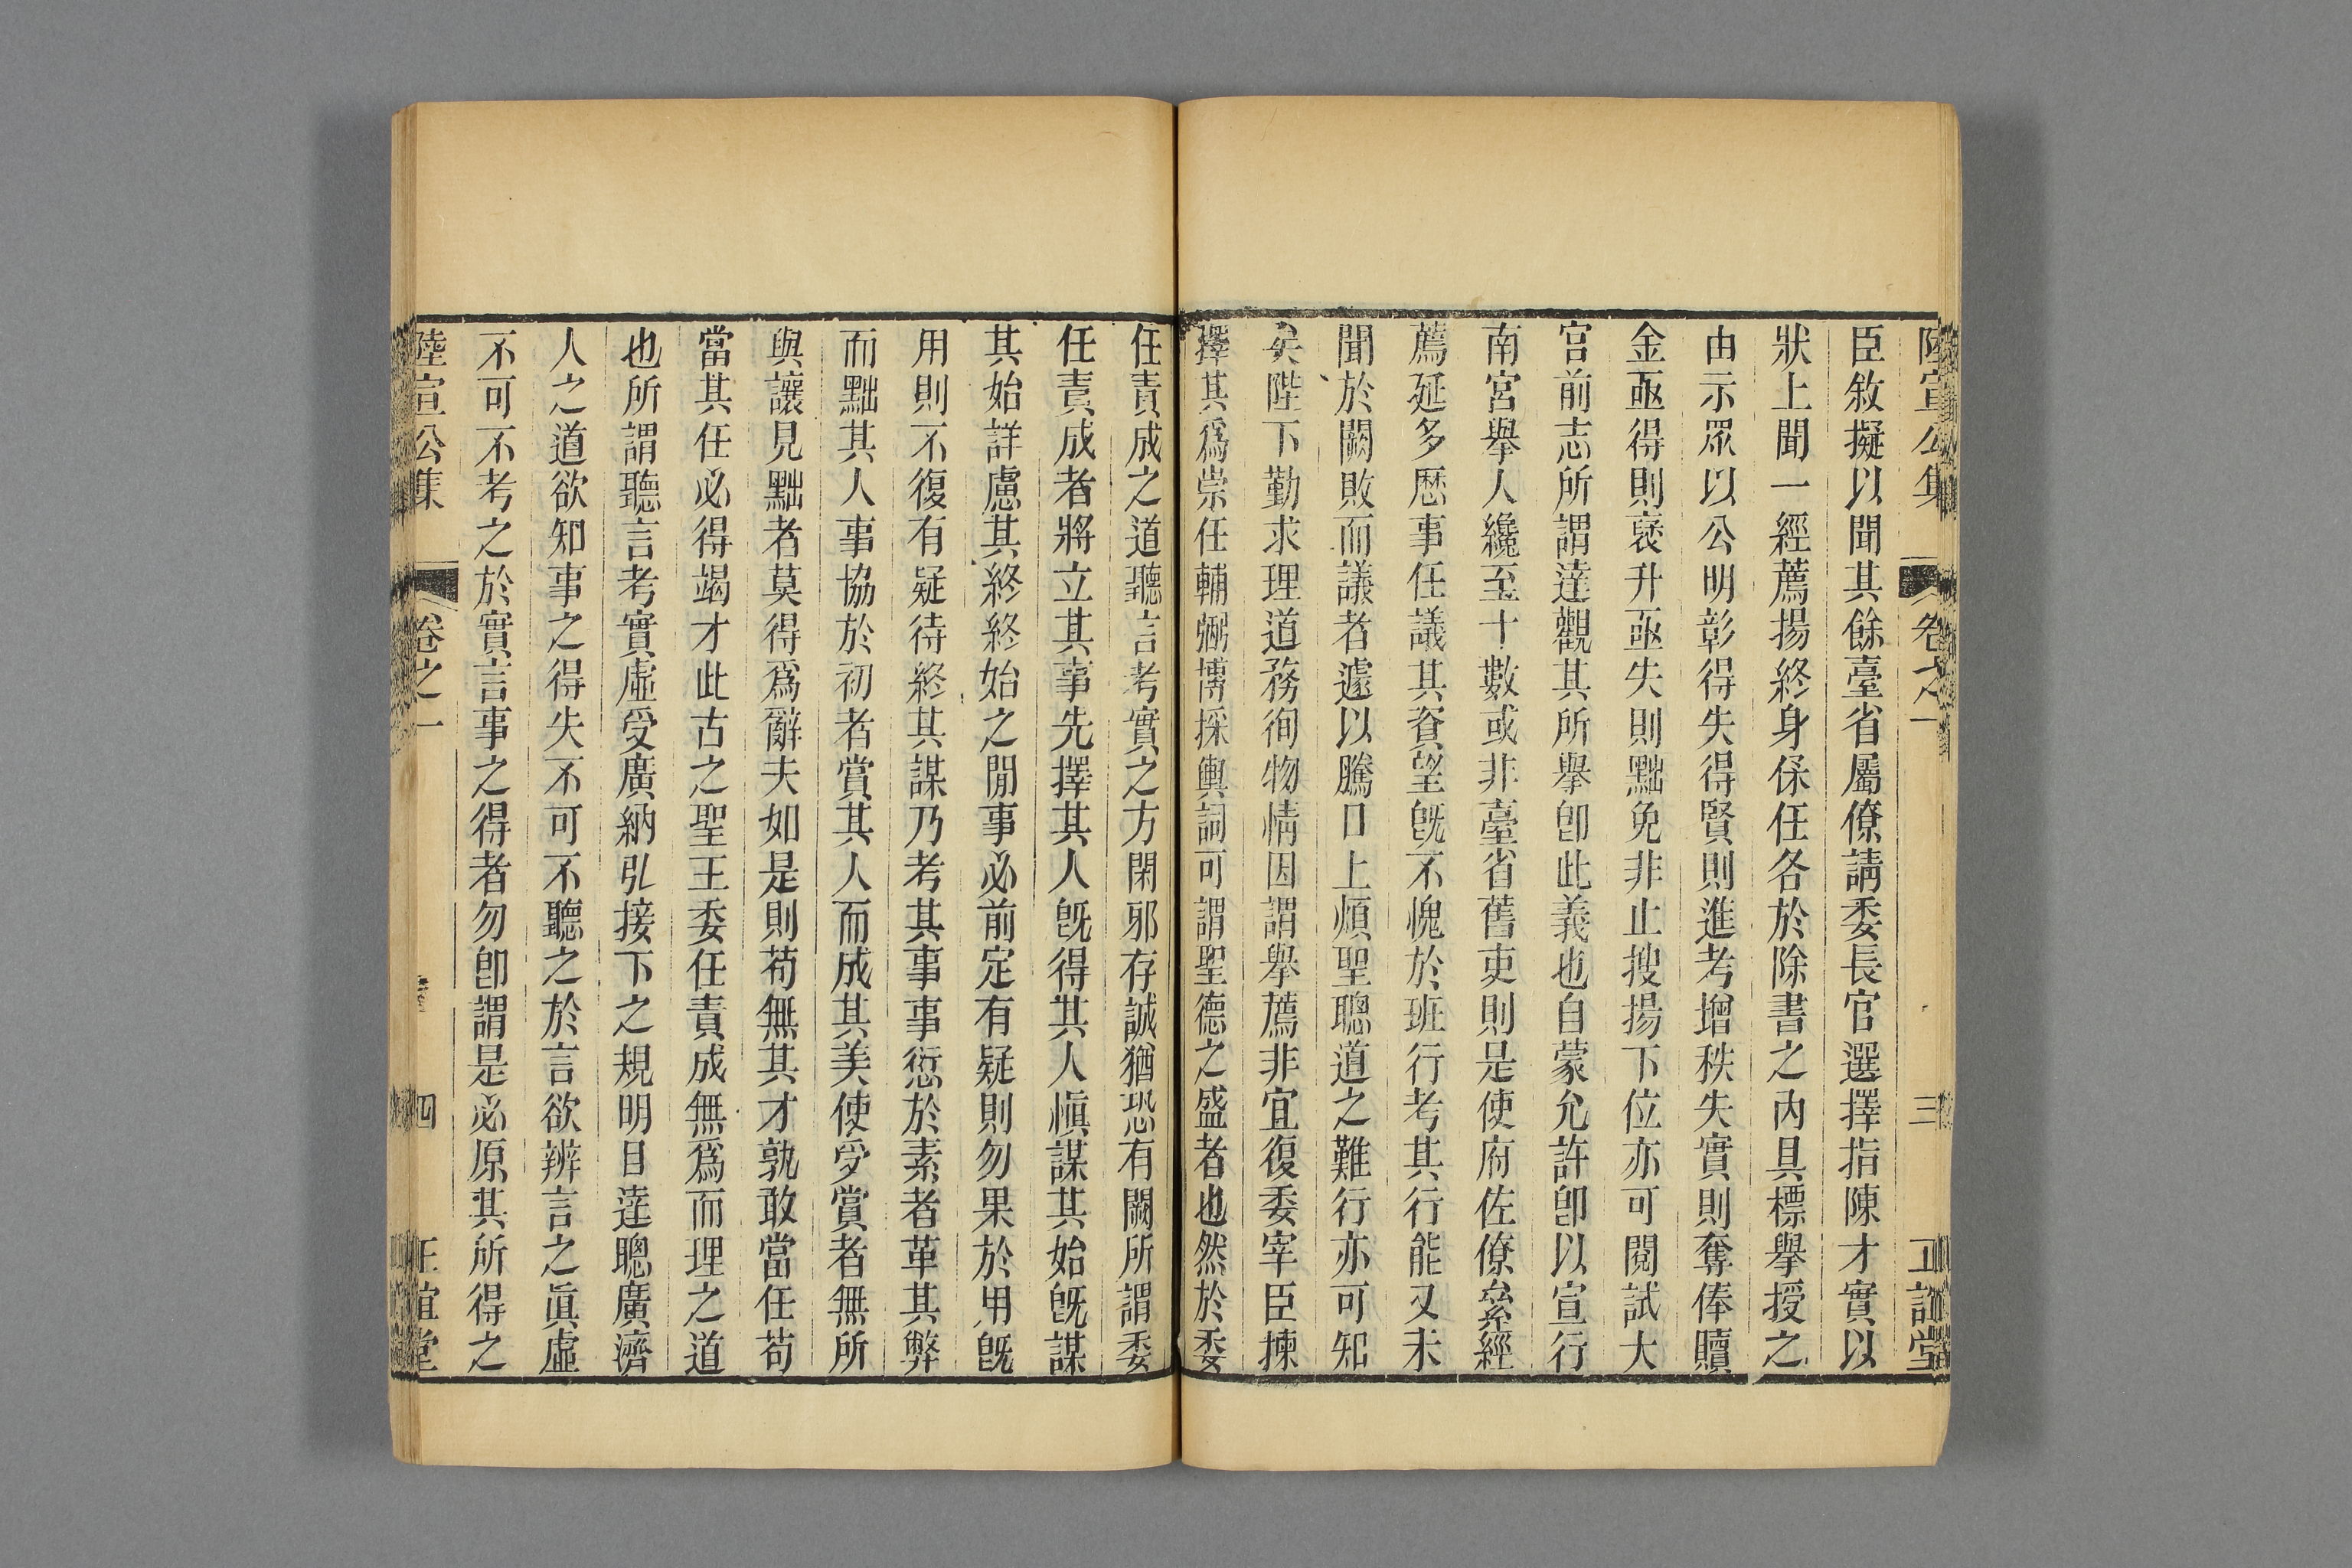 陸宣公集 卷之一 三 正誼堂
臣敘擬以聞其餘臺省屬僚請委長官選擇指陳才實以
狀上聞一經薦揚終身保任各於除書之內具標舉授之
由示眾以公明彰得失得賢則進考增秩失實則奪俸贖
金亟得則褒升亟失則黜免非止搜揚下位亦可閱試大
官前志所謂達觀其所舉卽此義也自蒙允許卽以宣行
南宮舉人纔至十數或非臺省舊吏則是使府佐僚絫經
薦延多歷事任議其資望旣不愧於班行考其行能又未
聞於闕敗而議者遽以騰口上煩聖聰道之難行亦可知
矣陛下勤求理道務徇物情因謂舉薦非宜復委宰臣揀
擇其爲崇任輔弼博採輿詞可謂聖德之盛者也然於委
任責成之道聽言考實之方閑邪存誠猶恐有闕所謂委
任責成者將立其事先擇其人旣得其人愼謀其始旣謀
其始詳慮其終終始之閒事必前定有疑則勿果於用旣
用則不復有疑待終其謀乃考其事事愆於素者革其弊
而黜其人事協於初者賞其人而成其美使受賞者無所
與讓見黜者莫得爲辭夫如是則苟無其才孰敢當任苟
當其任必得竭才此古之聖王委任責成無爲而理之道
也所謂聽言考實虛受廣納弘接下之規明目達聰廣濟
人之道欲知事之得失不可不聽之於言欲辨言之眞虛
不可不考之於實言事之得者勿卽謂是必原其所得之
陸宣公集 卷之一 四 正誼堂